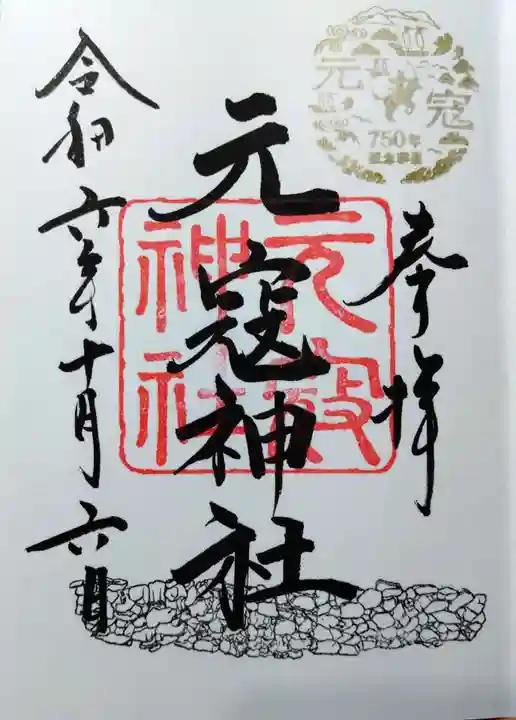 元寇
750年
奉拝
元寇神社
元寇神社
令和六年十月六日